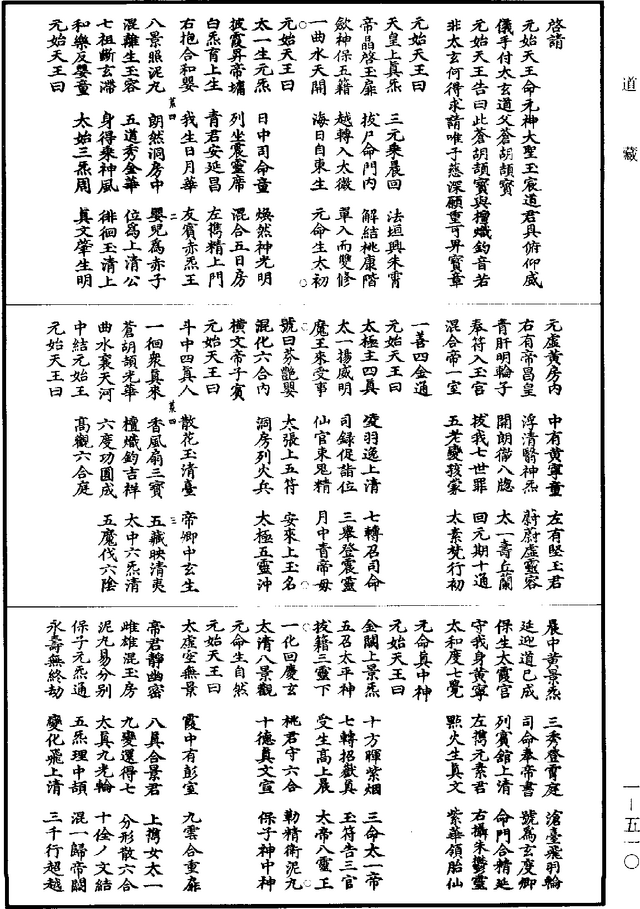 道藏
啓請
元始天王命元神大聖玉宸道君具俯仰威
儀手付太玄道父蒼胡頡寶
元始天王告曰此蒼胡頡寶與檀熾鈞音若
非太玄何得求請唯子慈深願重可昇寶章
元始天王曰
天皇上真炁 三元乘晨回 法垣興朱霄
帝晶啓玉扉 拔尸命門內 解結桃康階
斂神保五籍 越轉入太微 單入而雙修
一曲水天開 海日自東生 元命生太初
元始天王曰
太一生元炁 日中司命童 煥然神光明
披霞昇帝墉 列坐震靈席 混合五日房
白炁育上生 青君安延昌 左携精上門
右抱合和嬰 我生日月華 友賓赤炁王
八景眼泥九 朗然洞房中 嬰兒為赤子
混離生玉容 五道秀金華 位為上清公
七祖斷玄滯 身得乘神風 徘徊玉清上
和樂反嬰童 太始三炁周 真文肇生明
元始天王曰
元虛黃房內 中有黃寧童 左有堅玉君
右有帝昌皇 浮清翳神炁 蔚蔚虛靈容
青肝明輪子 開朗彌八牕 太一壽丘蘭
奉符入玉官 拔我七世罪 回元期十通
混合帝一室 五老變孩蒙 太素梵行初
一善四金通
元始天王曰
太極主四真 凌羽逸上清 七轉召司命
太一揚威明 司錄促詣位 三舉登震靈
魔王來受事 仙官束鬼精 月中青帝母
號曰芬艷嬰 太張上五符 安來上玉名
混化六合內 洞房列火兵 太極五靈沖
橫文帝子賓
元始天王曰
斗中四真人 散花玉清臺 帝卿中玄生
一徊衆真來 香風扇三寶 五藏映清夷
蒼胡頡光華 檀熾鈞吉祥 太中六炁清
曲水襄天河 六度功圓成 五魔伐六陰
中結元始王 高觀六合庭
元始天王曰
晨中黃景炁 三秀登霄庭 滄臺飛羽輪
延迎道已成 司命奉帝書 號為玄度卿
保生太霞官 列賓館上清 命門合精延
守我身黃寧 左携元素君 右攝朱鬱靈
太和度七覺 點火生真文 紫華領胎仙
元命真中神
元始天王曰
金闕上景炁 十方暉紫烟 三命太一帝
五召太平神 七轉招獻真 玉符告三官
拔籍三靈下 受生高上晨 太帝八靈王
一化回慶玄 桃君守六合 勒精衛泥九
太清八景觀 十德真文宣 保子神中神
元命生自然
元始天王曰
太虛空無景 霞中有彭室 九雲合重扉
帝君靜幽密 八真合景君 上携女太一
雌雄混玉房 九變還得七 分形散六合
泥九易分別 太真九光輪 十佺ノ文結
保子元炁通 五炁理中頡 混一歸帝闕
永壽無終劫 變化飛上清 三千行超越
第四 二
第四 三
一—五一〇